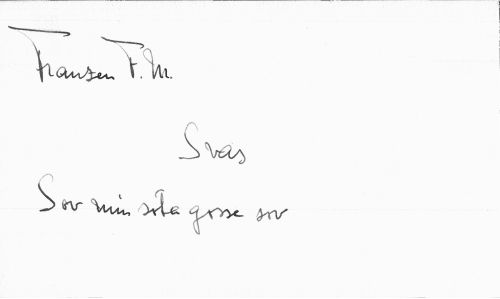 Franzen F. M.
Svas
Sov min söta gosse sov